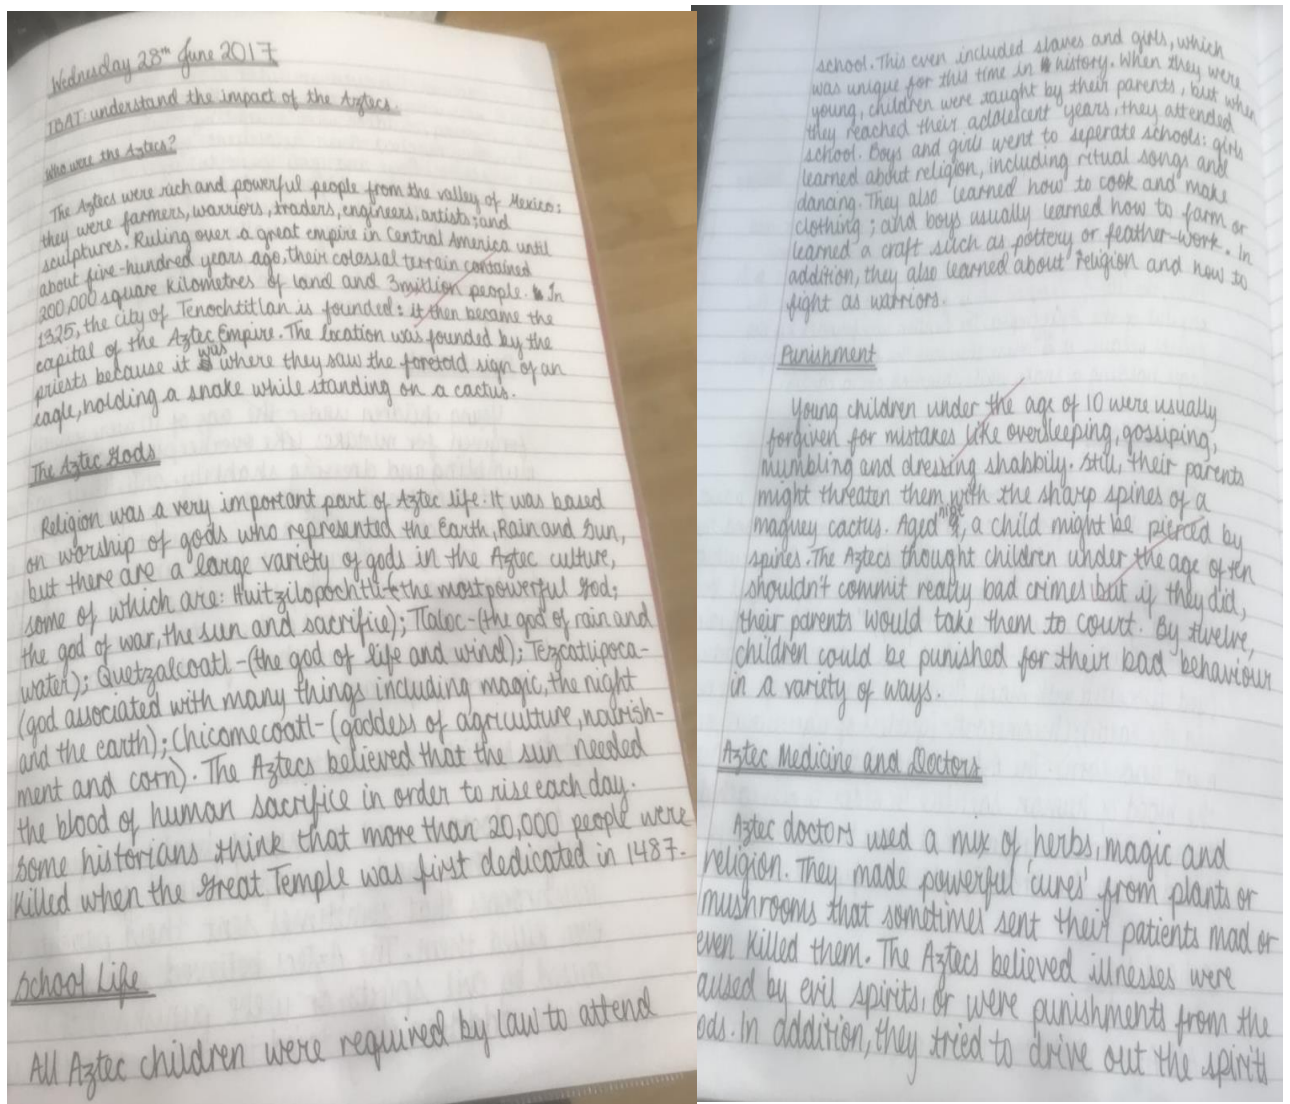 Wednesday 28th June 2017
IBAT: understand the impact of the Aztecs.
Who were the Aztecs?
The Aztecs were rich and powerful people from the valley of Mexico:
they were farmers, warriors, traders, engineers, artists; and
sculptures. Ruling over a great empire in Central America until
about five-hundred years ago, their colossal terrain contained
200,000 square kilometres of land and 3million people. In
1325, the city of Tenochtitlan is founded: it then became the
capital of the Aztec Empire. The location was founded by the
priests because it was where they saw the foretold sign of an
eagle, holding a snake while standing on a cactus.
The Aztec Gods
Religion was a very important part of Aztec life. It was based
on worship of gods who represented the Earth, Rain and Sun,
but there are a large variety of gods in the Aztec culture,
some of which are: Huitzilopochtli-(the most powerful god;
the god of war, the sun and sacrifice); Tlaloc-(the god of rain and
water); Quetzalcoatl-(the god of life and wind); Tezcatlipoca-
(god associated with many things including magic, the night
and the earth); Chicomecoatl-(goddess of agriculture, nourish-
ment and corn). The Aztecs believed that the sun needed
the blood of human sacrifice in order to rise each day.
Some historians think that more than 20,000 people were
killed when the Great Temple was first dedicated in 1487.
School Life
All Aztec children were required by law to attend
school. This even included slaves and girls, which
was unique for this time in history. When they were
young, children were taught by their parents, but when
they reached their adolescent years, they attended
school. Boys and girls went to seperate schools: girls
learned about religion, including ritual songs and
dancing. They also learned how to cook and make
clothing; and boys usually learned how to farm or
learned a craft such as pottery or feather-work. In
addition, they also learned about religion and how to
fight as warriors.
Punishment
Young children under the age of 10 were usually
forgiven for mistakes like oversleeping, gossiping,
mumbling and dressing shabbily. Still, their parents
might threaten them with the sharp spines of a
maguey cactus. Aged nine, a child might be pierced by
spines. The Aztecs thought children under the age of ten
shouldn't commit really bad crimes but if they did,
their parents would take them to court. By twelve,
children could be punished for their bad behaviour
in a variety of ways.
Aztec Medicine and Doctors
Aztec doctors used a mix of herbs, magic and
religion. They made powerful 'cures' from plants or
mushrooms that sometimes sent their patients mad or
even killed them. The Aztecs believed illnesses were
aused by evil spirits, or were punishments from the
ods. In addition, they tried to drive out the spirits